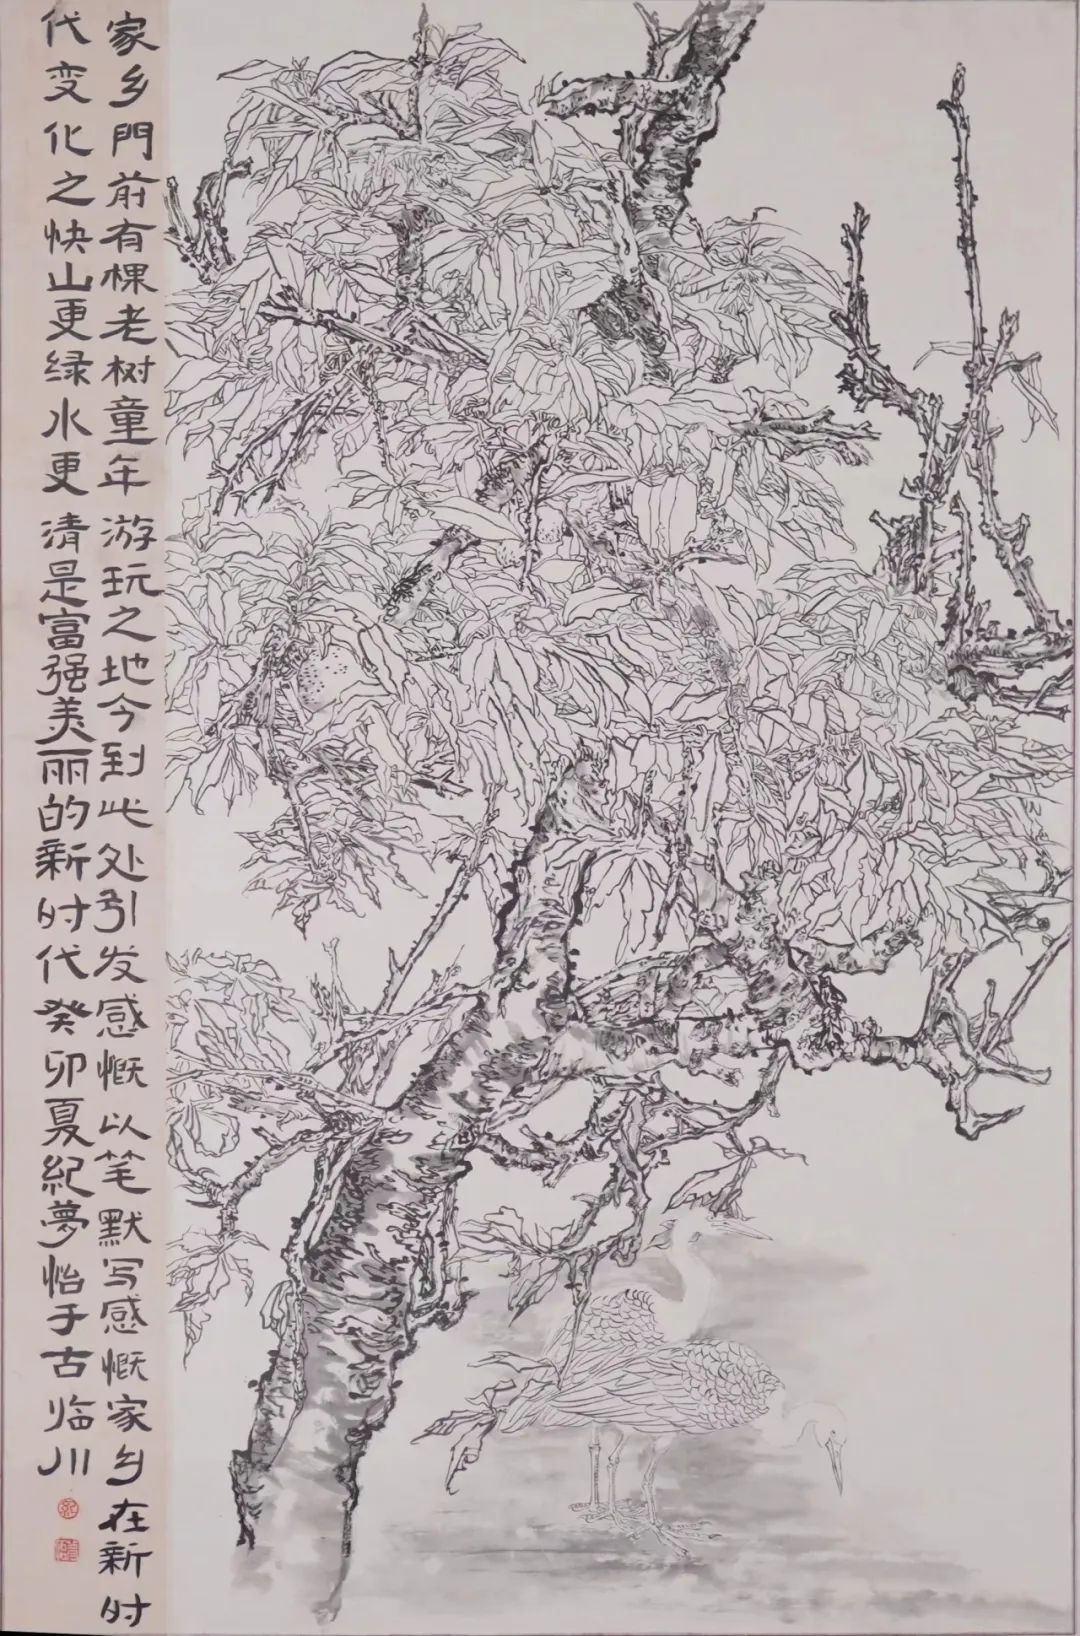 家乡門前有棵老树童年游玩之地今到此处引发感慨以笔默写感慨家乡在新时
代变化之快山更绿水更清是富强美丽的新时代癸卯夏紀夢怡于古临川